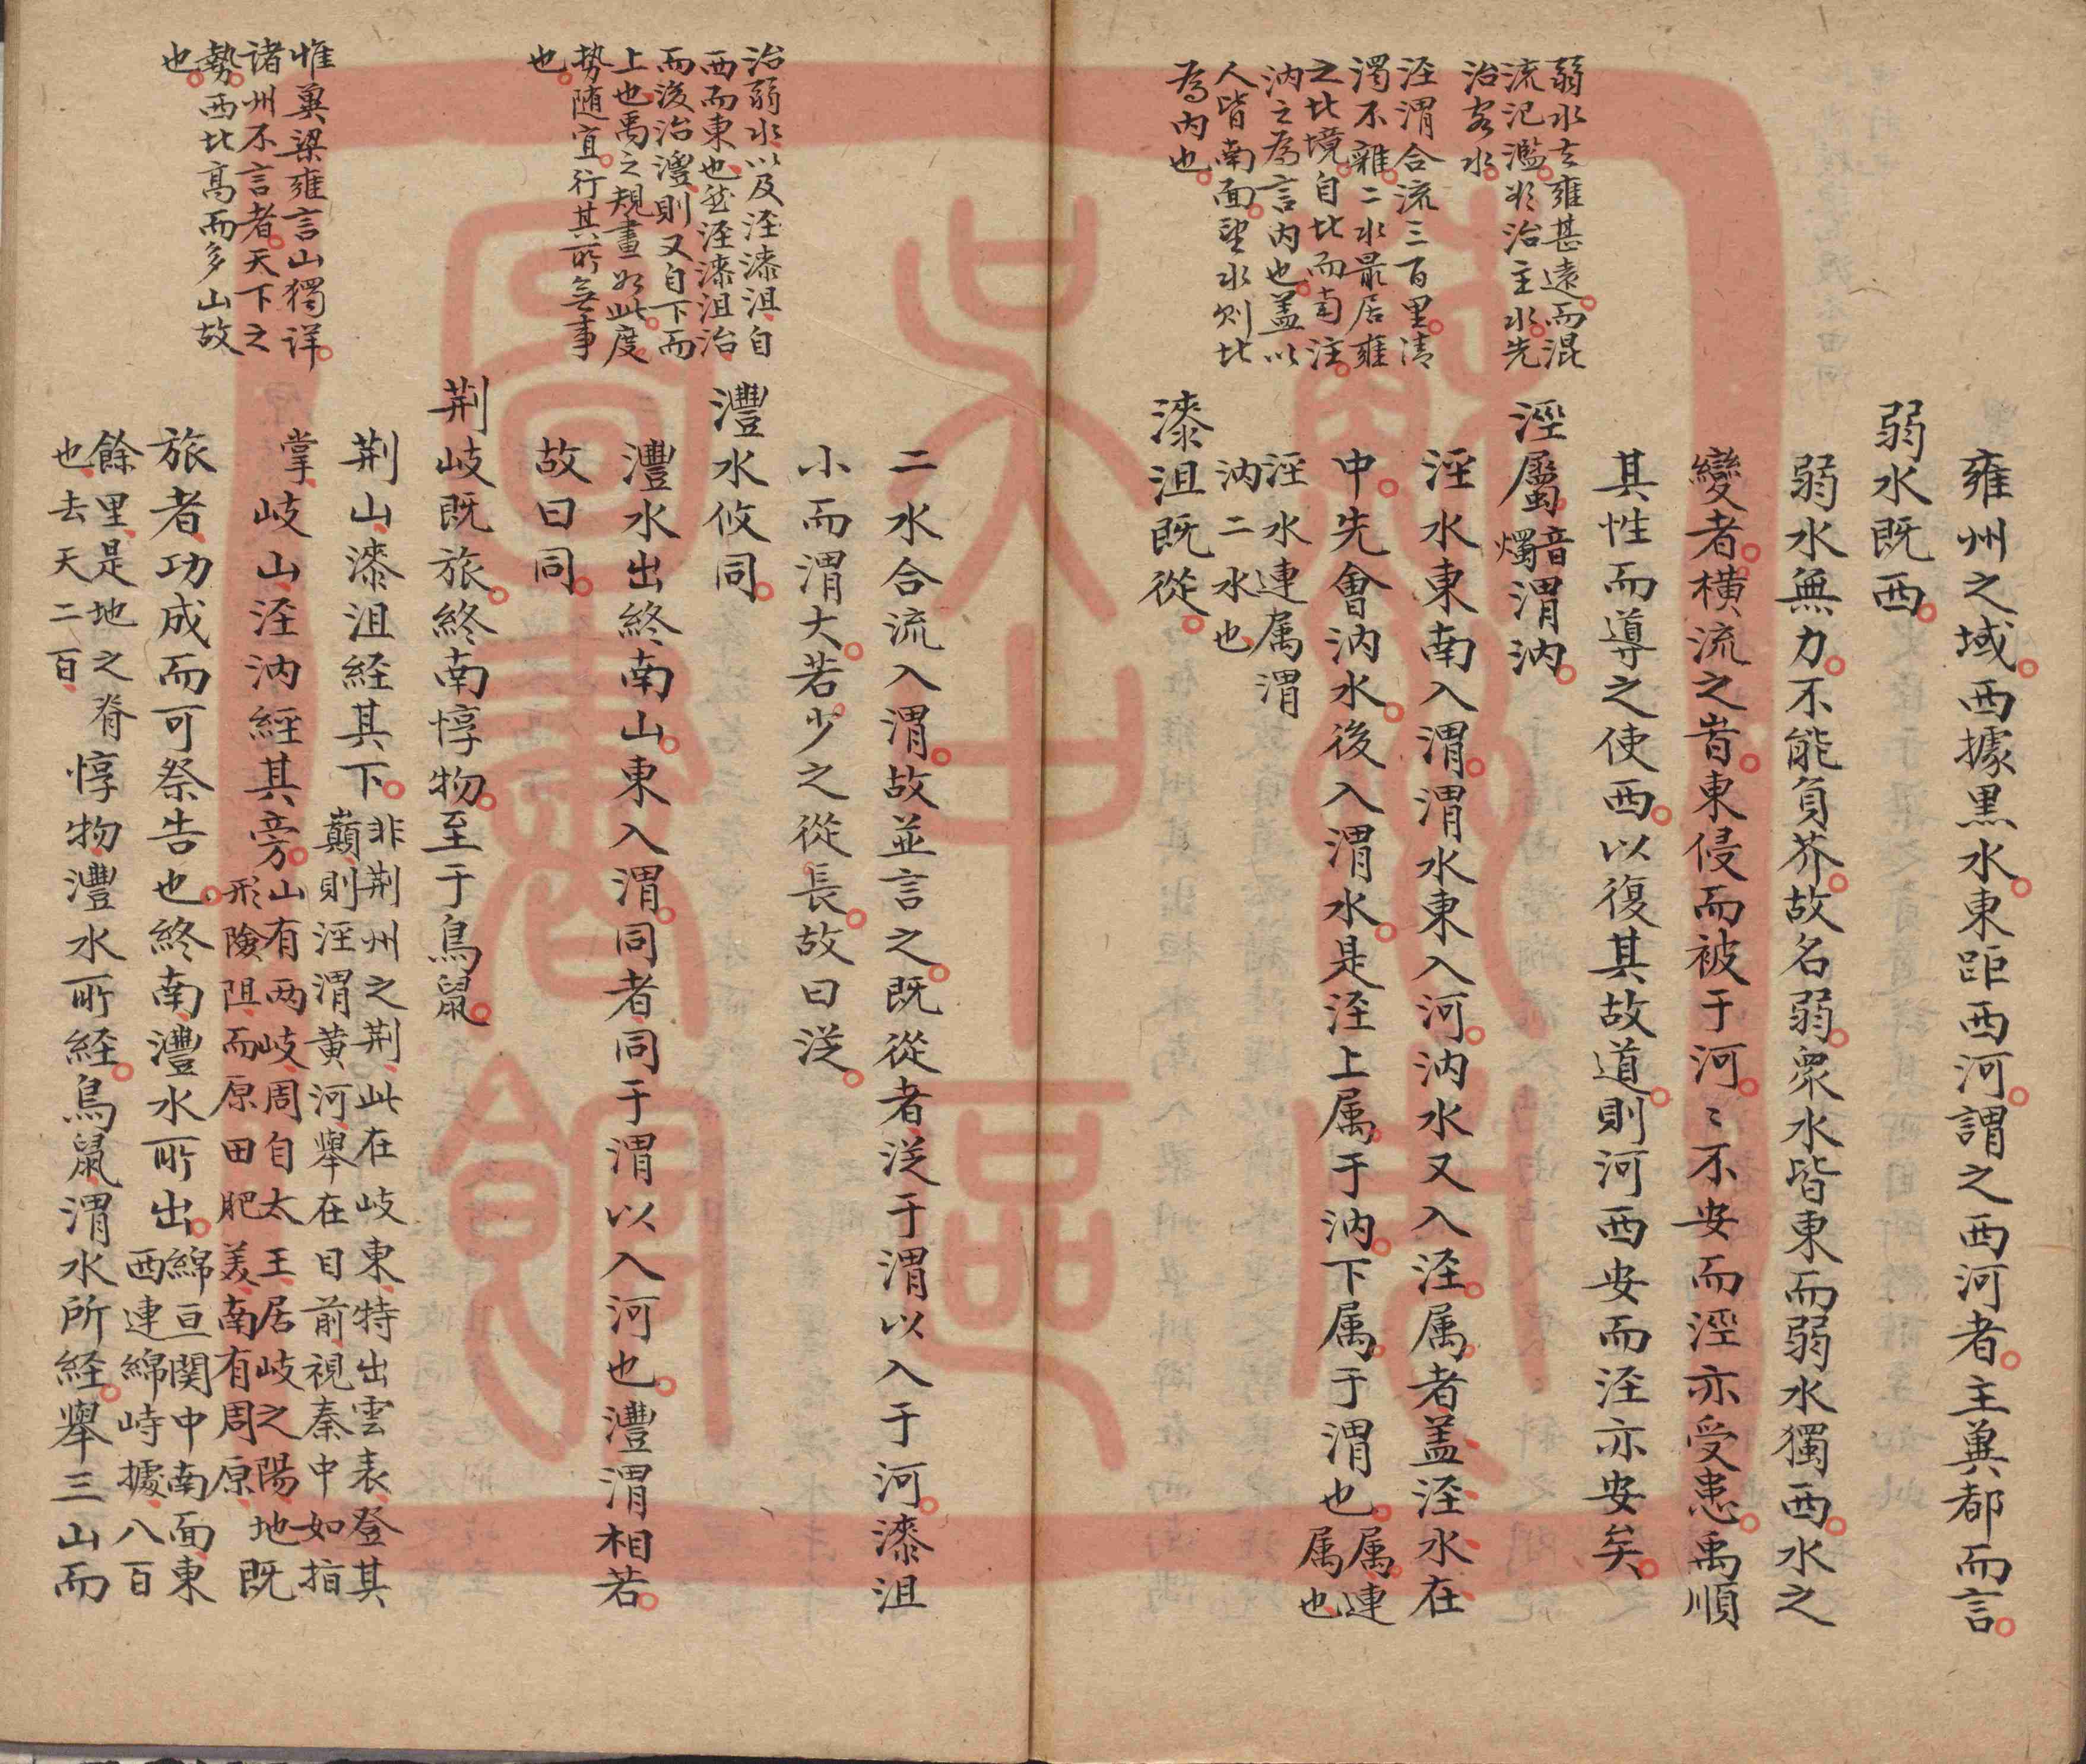 弱水去雍甚遠而混
流氾濫㸔治主水先
治客水
涇渭合流三百里清
濁不雜二水最居雍
之北境自北而南注
汭之為言内也盖以
人皆南面望水則北
為内也
雍州之域西據黒水東距西河謂之西河者主冀都而言
弱水既西
弱水無力不能負芥故名弱衆水皆東而弱水獨西水之
變者横流之旹東侵而被于河〻不安而涇亦受患禹順
其性而導之使西以復其故道則河西安而涇亦安矣
涇屬音燭渭汭
涇水東南入渭渭水東入河汭水又入涇属者盖涇水在
中先會汭水後入渭水是涇上属于汭下属于渭也属連属也
涇水連属渭
汭二水也
漆沮既從
治弱水以及涇漆沮自
西而東也然涇漆沮治
而後治灃則又自下而
上也禹之規畫如此度
势随宜行其所無事
也
二水合流入渭故並言之既從者從于渭以入于河漆沮
小而渭大若少之從長故曰從
灃水攸同
灃水出終南山東入渭同者同于渭以入河也灃渭相若
故曰同
荆岐既旅終南惇物至于鳥鼠
惟冀梁雍言山獨詳
诸州不言者天下之
勢西北高而多山故
也
荆山漆沮経其下非荆州之荆此在岐東特出雲表登其
巔則涇渭黄河舉在目前視秦中如指
掌岐山涇汭經其旁山有两岐周自太王居岐之陽地既
形險阻而原田肥美南有周原
旅者功成而可祭告也終南灃水所出綿亘関中南面東
西連綿峙據八百
餘里是地之脊
也去天二百
惇物灃水所経鳥鼠渭水所経舉三山而